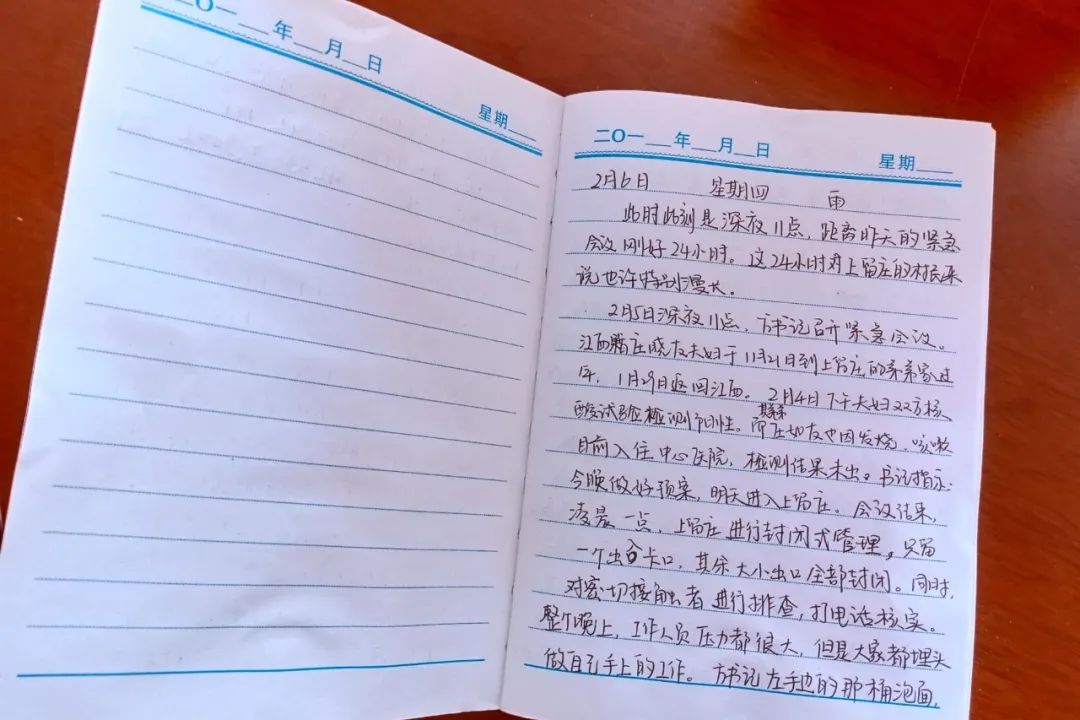 二〇一 年 月 日
星期
二〇一 年 月 日 星期
2月6日 星期四 雨
此时此刻是深夜11点,距离昨天的紧急
会议刚好24小时。这24小时对上留庄的村民来
说也许特别漫长。
2月5日深夜11点,方书记召开紧急会议。
江西籍庄晓友夫妇于11月21日到上留庄的弟弟家过
年,1月29日返回江西。2月4日下午夫妇双方核
酸试验检测为阳性。
庄如友也因发烧、咳嗽
目前入住中心医院,检测结果未出。书记指示:
今晚做好预案,明天进入上留庄。会议结果,
凌晨一点,上留庄进行封闭式管理,只留
一个出入卡口,其余大小出口全部封闭。同时,
对密切接触者进行排查,打电话核实。
整个晚上,工作人员压力都很大,但是大家都埋头
做自己手上的工作。方书记左手边的那桶泡面,